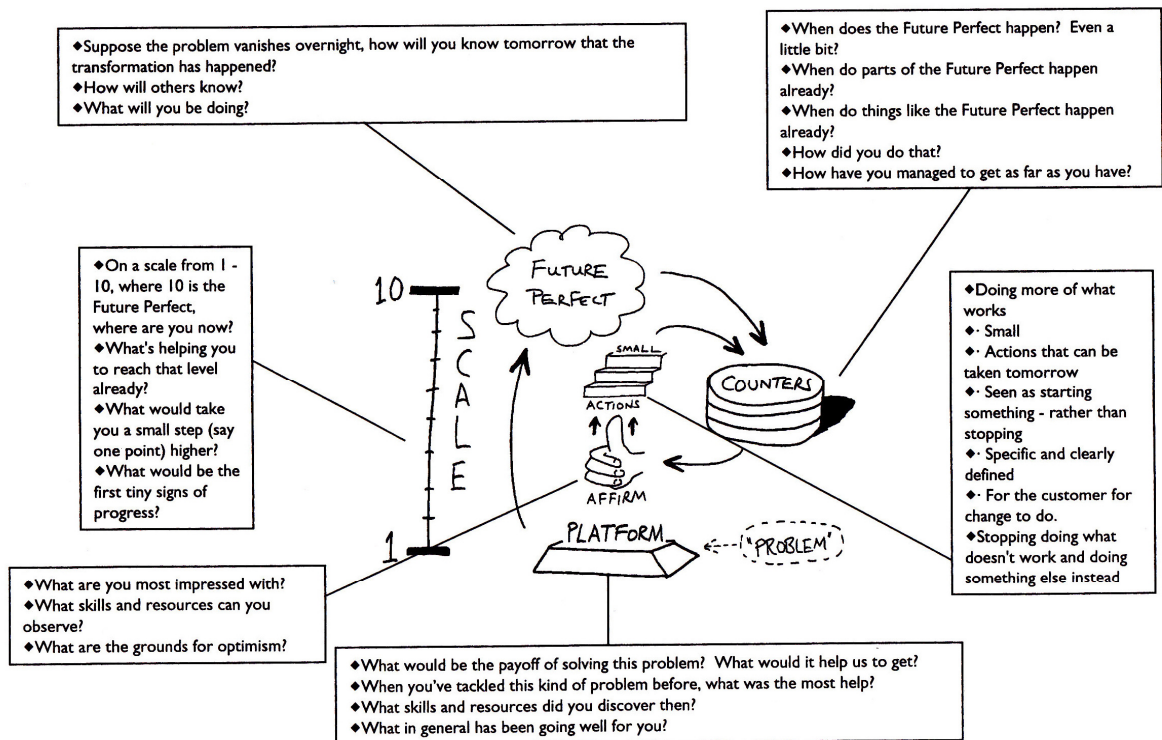 ◆Suppose the problem vanishes overnight, how will you know tomorrow that the
transformation has happened?
◆How will others know?
◆What will you be doing?
◆When does the Future Perfect happen?  Even a
little bit?
◆When do parts of the Future Perfect happen
already?
◆When do things like the Future Perfect happen
already?
◆How did you do that?
◆How have you managed to get as far as you have?
◆On a scale from 1 -
10, where 10 is the
Future Perfect,
where are you now?
◆What's helping you
to reach that level
already?
◆What would take
you a small step (say
one point) higher?
◆What would be the
first tiny signs of
progress?
10
SCALE
1
FUTURE
PERFECT
SMALL
ACTIONS
COUNTERS
AFFIRM
PLATFORM
"PROBLEM"
◆Doing more of what
works
◆· Small
◆· Actions that can be
taken tomorrow
◆· Seen as starting
something - rather than
stopping
◆· Specific and clearly
defined
◆· For the customer for
change to do.
◆Stopping doing what
doesn't work and doing
something else instead
◆What are you most impressed with?
◆What skills and resources can you
observe?
◆What are the grounds for optimism?
◆What would be the payoff of solving this problem?  What would it help us to get?
◆When you've tackled this kind of problem before, what was the most help?
◆What skills and resources did you discover then?
◆What in general has been going well for you?